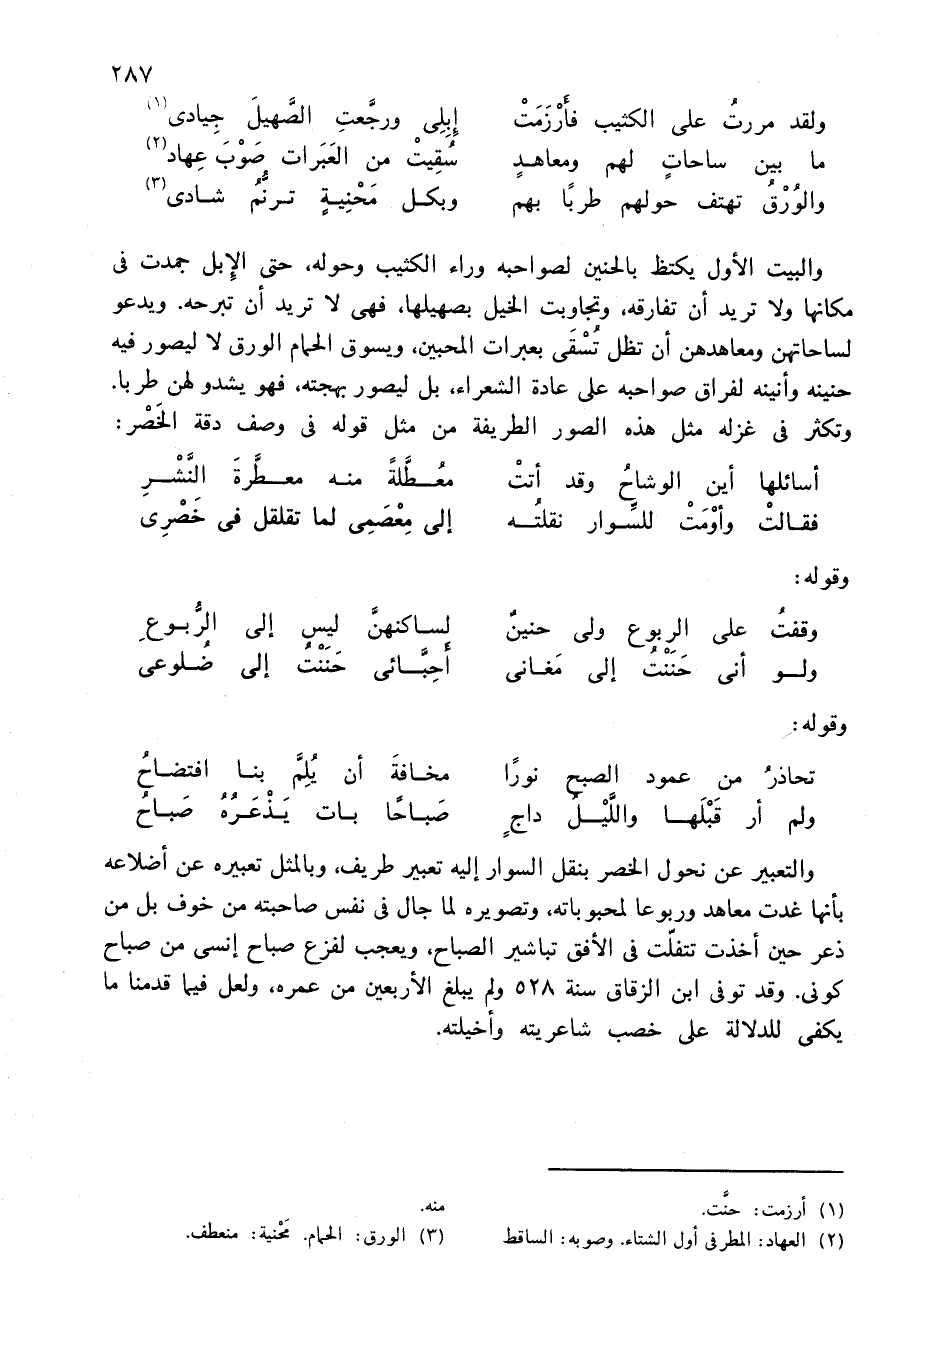 ٢٨٧
ولقد مررتُ على الكثيب فأَرْزَمَتْ إبِلِى ورجَّعتِ الصَّهيلَ جِيادى(١)
ما بين ساحاتٍ لهم ومعاهدٍ سُقِيتْ من العَبَرات صَوْبَ عِهاد(٢)
والوُرْقُ تهتف حولهم طربًا بهم وبكل مَحْنِيةٍ ترنُّم شادى(٣)
والبيت الأول يكتظ بالحنين لصواحبه وراء الكثيب وحوله، حتى الإبل جمدت فى
مكانها ولا تريد أن تفارقه، وتجاوبت الخيل بصهيلها، فهى لا تريد أن تبرحه. ويدعو
لساحاتهن ومعاهدهن أن تظل تُسْقَى بعبرات المحبين، ويسوق الحمام الورق لا ليصور فيه
حنينه وأنينه لفراق صواحبه على عادة الشعراء، بل ليصور بهجته، فهو يشدو لهن طربا.
وتكثر فى غزله مثل هذه الصور الطريفة من مثل قوله فى وصف دقة الخَصْر:
أسائلها أين الوشاحُ وقد أتتْ معُطَّلةً منه معطَّرةَ النَّشْرِ
فقالتْ وأوْمَتْ للسِّوار نقلتُه إلى مِعْصَمِى لما تقلقل فى خَصْرِى
وقوله:
وقفتُ على الربوع ولى حنينٌ لساكنهنَّ ليس إلى الرُّبوعِ
ولو أنى حَنَنْتُ إلى مَغانى أَحِبَّائى حَنَنْتُ إلى ضُلوعى
وقوله:
تحاذرُ من عمود الصبح نورًا مخافةَ أن يُلِمَّ بنا افتضاحُ
ولم أر قَبْلَها واللَّيْلُ داجٍ صَباحًا بات يَذْعَرُهُ صَباحُ
والتعبير عن نحول الخصر بنقل السوار إليه تعبير طريف، وبالمثل تعبيره عن أضلاعه
بأنها غدت معاهد وربوعا لمحبوباته، وتصويره لما جال فى نفس صاحبته من خوف بل من
ذعر حين أخذت تتفلّت فى الأفق تباشير الصباح، ويعجب لفزع صباح إنسى من صباح
كونى. وقد توفى ابن الزقاق سنة ٥٢٨ ولم يبلغ الأربعين من عمره، ولعل فيما قدمنا ما
يكفى للدلالة على خصب شاعريته وأخيلته.
(١) أرزمت: حنَّت.
(٢) العهاد: المطر فى أول الشتاء. وصوبه: الساقط
منه.
(٣) الورق: الحمام. مَحْنية: منعطف.